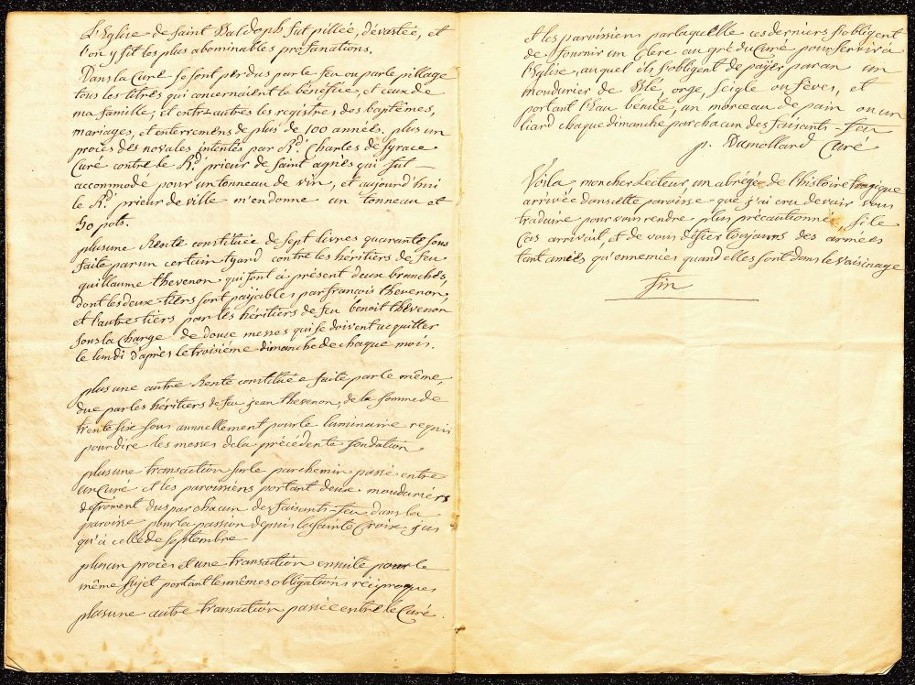 L'Eglise de Saint Baldoph fut pillée, dévastée, et
l'on y fit les plus abominables profanations.
Dans la Cure se sont perdus par le feu ou par le pillage
tous les titres qui concernaient le bénéfice, et ceux de
ma famille, et entr'autres les registres des baptêmes,
mariages, et enterremens de plus de 100 années. plus un
procès des novales intentés par Rd. Charles de Syrace
Curé contre le Rd. prieur de Saint agnès qui fut
accommodé pour un tonneau de vin, et aujourd'hui
le Rd. prieur de ville m'en donne un tonneau et
50 pots.
plus une Rente constituée de sept livres quarante sous
faite par un certain tyard contre les héritiers de feu
guillaume thevenon qui font à présent deux branches,
dont les deux tiers sont payables par françois thevenon,
et l'autre tiers par les héritiers de feu benoit thevenon
sous la Charge de douse messes qui se doivent acquitter
le lundi d'après le troisième dimanche de chaque mois.
plus une autre Rente constituée faite par le même,
due par les héritiers de feu jean thevenon, de la somme de
trente six sous annuellement pour le luminaire requis
pour dire les messes de la précédente fondation
plus une transaction sur le parchemin passée entre
un Curé et les paroissiens portant deux mouduriers
de froment dus par chacun des faisants-feu dans la
paroisse pour la passion depuis la Sainte Croix jus
qu'à celle de septembre
plus un procès et une transaction ensuite pour le
même sujet portant le mêmes obligations réciproques
plus une autre transaction passée entre le Curé
et les paroissiens par laquelle ces derniers s'obligent
de fournir un Clerc au gré du Curé pour servir à
l'Eglise, auquel ils s'obligent de payer par an un
moudurier de blé, orge, seigle ou fèves, et
portant l'eau bénite, un morceau de pain ou un
liard chaque dimanche par chacun des faisants-feu
p. Dumollard Curé
Voila, mon cher Lecteur, un abrégé de l'histoire tragique
arrivée dans cette paroisse que j'ai cru devoir vous
traduire pour vous rendre plus précautionné, si le
Cas arrivait, et de vous défier toujours des armées
tant amies qu'ennemies quand elles sont dans le Voisinage
fin